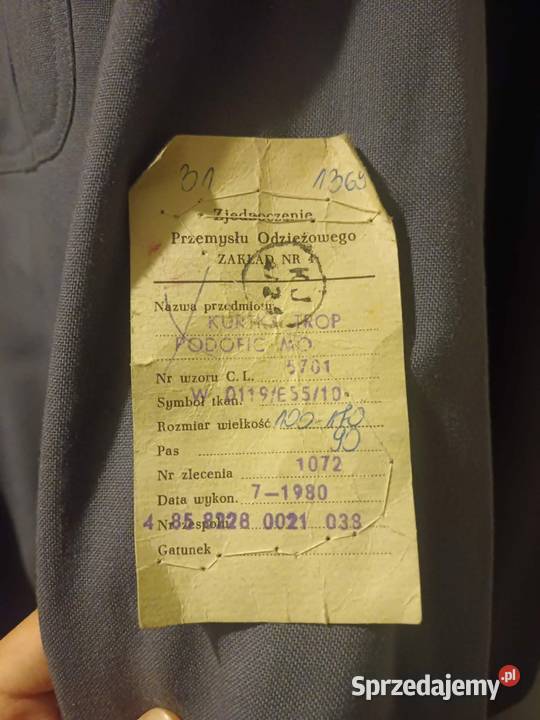 31 1369
Zjednoczenie
Przemysłu Odzieżowego
ZAKŁAD NR 4
KJ
Nazwa przedmiotu
KURTKA TROP
PODOFIC MO
Nr wzoru C. L. 5701
W 0119/E55/10
Symbol tkan.
Rozmiar wielkość 100-170
Pas 90
Nr zlecenia 1072
Data wykon. 7-1980
Nr zespołu 0021 038
Gatunek
Sprzedajemy.pl